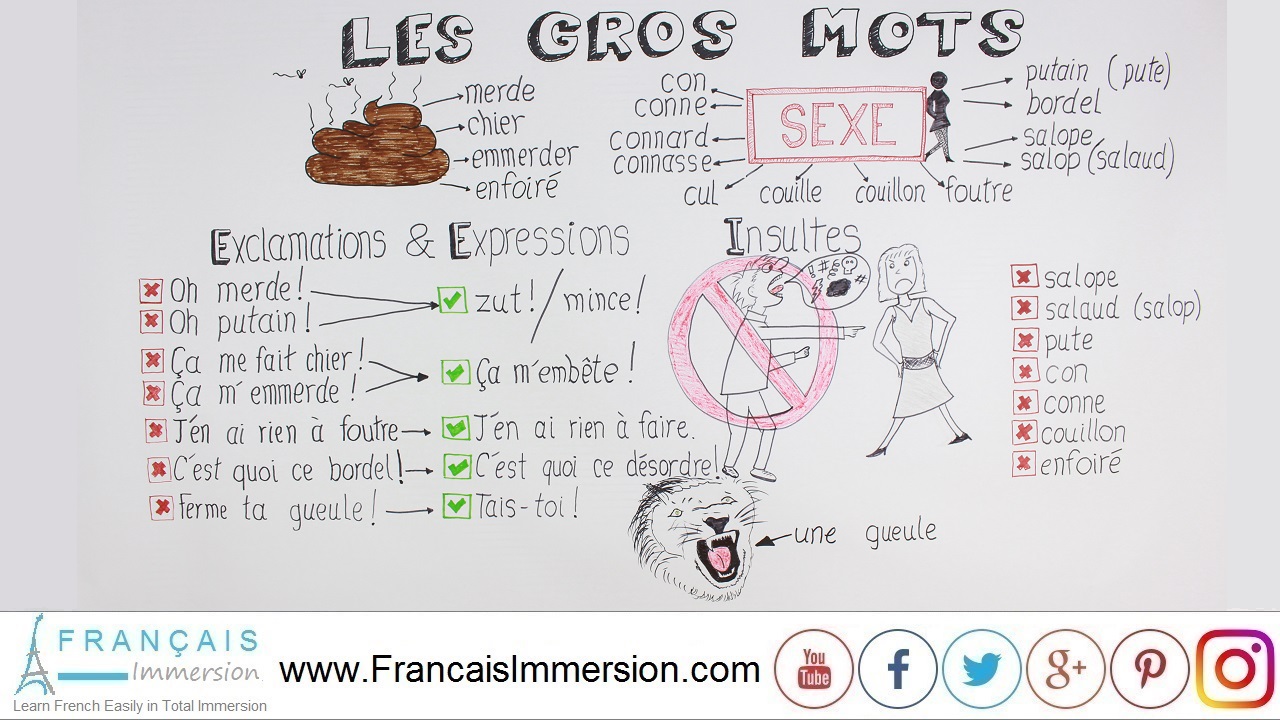 LES GROS MOTS
merde
chier
emmerder
enfoiré
con
conne
connard
connasse
SEXE
cul
couille
couillon
foutre
putain (pute)
bordel
salope
salop (salaud)
Exclamations & Expressions
Oh merde!
Oh putain!
zut!/mince!
Ça me fait chier!
Ça m'emmerde!
Ça m'embête!
J'én ai rien à foutre
J'én ai rien à faire.
C'est quoi ce bordel!
C'est quoi ce désordre!
Ferme ta gueule!
Tais-toi!
Insultes
!#
salope
salaud (salop)
pute
con
conne
couillon
enfoiré
une gueule
FRANÇAIS
Immersion
Learn French Easily in Total Immersion
www.FrancaisImmersion.com
You
Tube
f
g+